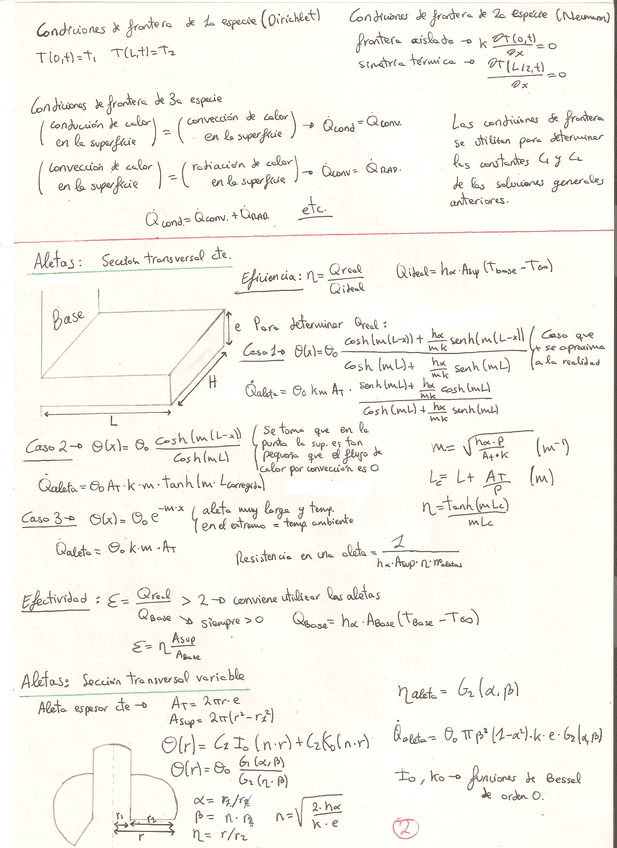 Condiciones de frontera de 1a especie (Dirichlet)
T(0,t)=T₁ T(L,t)=T₂
Condiciones de frontera de 2a especie (Neumann)
frontera aislada → k ∂T(0,t)/∂x = 0
simetría térmica → ∂T(L/2,t)/∂x = 0
Condiciones de frontera de 3a especie
(conducción de calor en la superficie) = (convección de calor en la superficie) → Q̇cond = Q̇conv.
(convección de calor en la superficie) = (radiación de calor en la superficie) → Q̇conv = Q̇RAD.
Q̇cond. = Q̇conv. + Q̇RAD etc.
Las condiciones de frontera
se utilizan para determinar
las constantes C₁ y C₂
de las soluciones generales
anteriores.
Aletas: Sección transversal cte.
Eficiencia: η = Qreal/Qideal Qideal = hα·Asup (Tbase - T∞)
Base
e
H
L
Para determinar Qreal:
Caso 1 → θ(x) = θ₀ (cosh(m(L-x)) + hα/mk senh(m(L-x)))/(cosh(mL) + hα/mk senh(mL))
(Caso que + se aproxima a la realidad
Q̇aleta = θ₀ k m A_T · (senh(mL) + hα/mk cosh(mL))/(cosh(mL) + hα/mk senh(mL))
Caso 2 → θ(x) = θ₀ cosh(m(L-x))/cosh(mL)
(Se toma que en la
punta la sup. es tan
pequeña que el flujo de
calor por convección es 0
Q̇aleta = θ₀ A_T · k · m · tanh(m · Lcorregida)
m = √(hα·P/A_T·k) (m⁻¹)
Lc = L + A_T/P (m)
η = tanh(mLc)/mLc
Caso 3 → θ(x) = θ₀ e^(-m·x) (aleta muy larga y temp.
en el extremo = temp. ambiente
Q̇aleta = θ₀ k · m · A_T
Resistencia en una aleta = 1/(hα · Asup · η · nºaletas)
Efectividad: ε = Qreal/QBase > 2 → conviene utilizar las aletas
↘ siempre > 0 QBase = hα · ABase (TBase - T∞)
ε = η Asup/ABase
Aletas: Sección transversal variable
Aleta espesor cte → A_T = 2πr·e
Asup = 2π(r² - r₁²)
θ(r) = C₂ I₀ (n·r) + C₂ K₀ (n·r)
θ(r) = θ₀ G₁(α,β)/G₂(η·β)
α = r₁/r₂
β = n · r₂
η = r/r₂
n = √(2·hα/k·e)
r₁ r₂
r
ηaleta = G₂(α,β)
Q̇aleta = θ₀ π β² (1-α²) · k · e · G₂(α,β)
I₀, K₀ → funciones de Bessel
de orden 0.
2